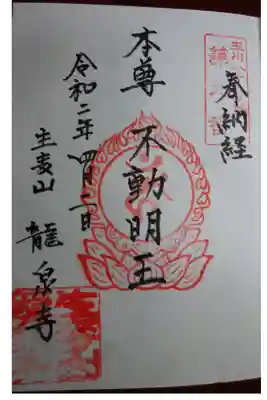 奉納経
本尊 不動明王
令和二年四月二日
生麦山 龍泉寺